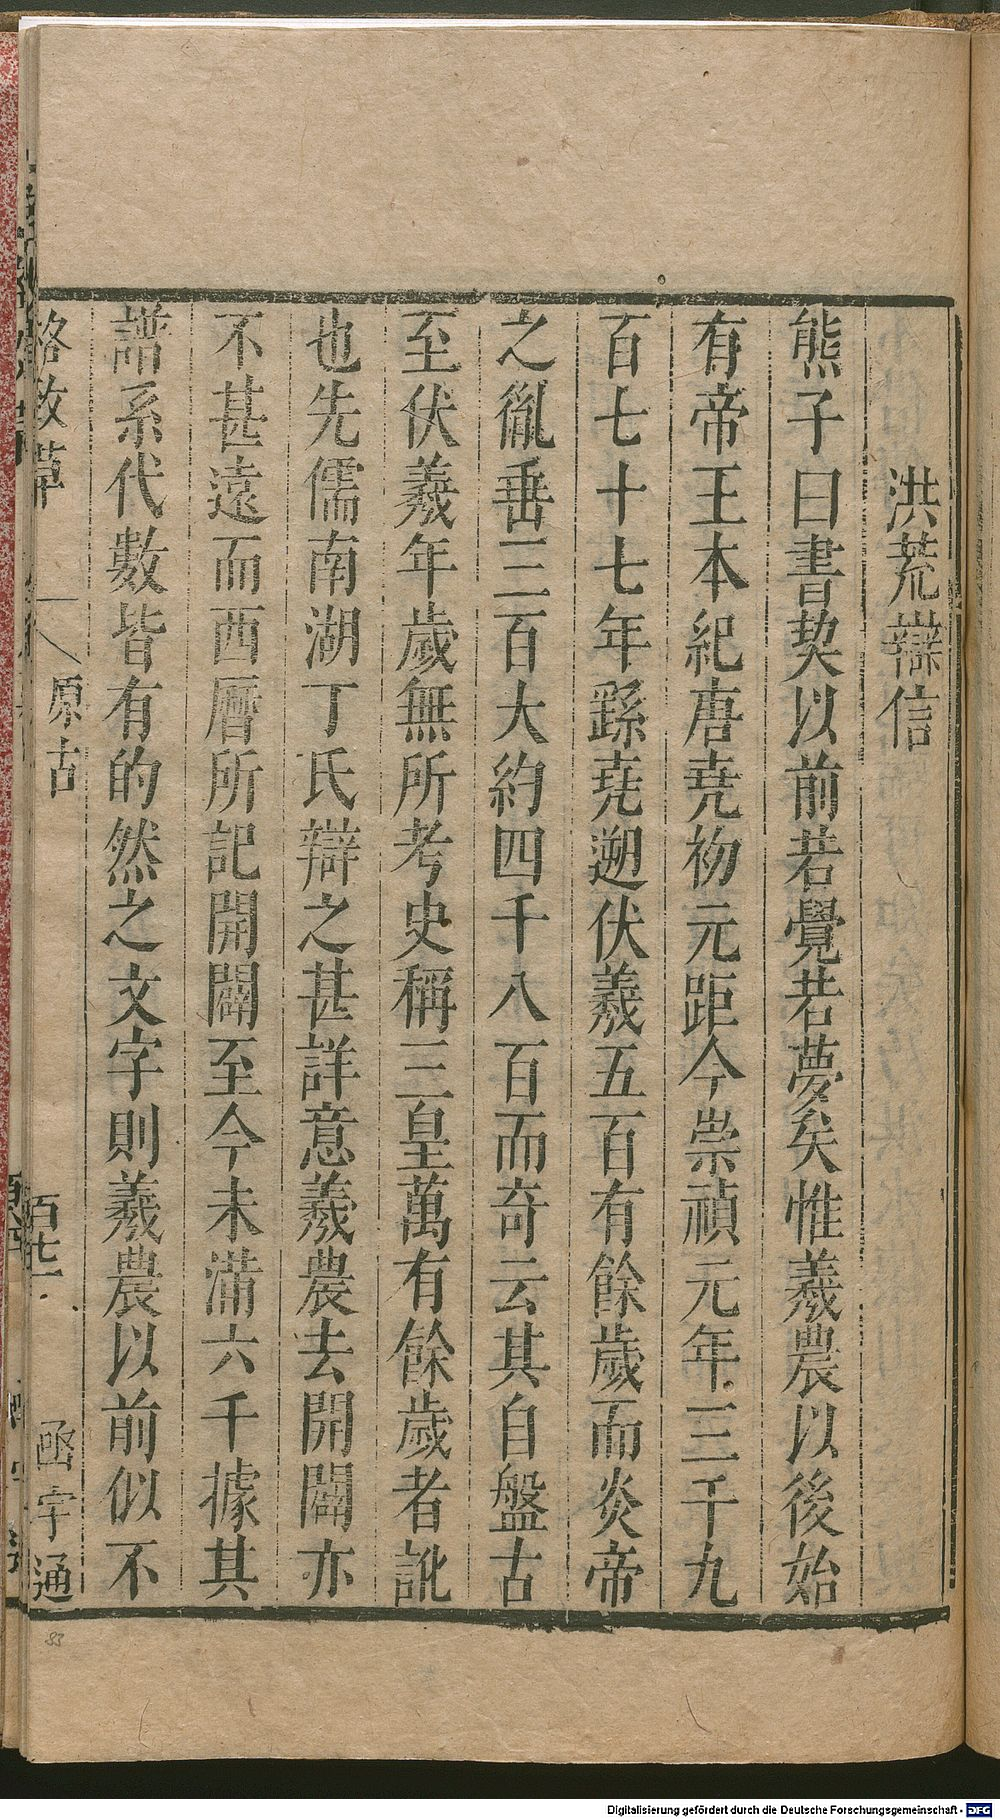 洪荒辯信
熊子曰書契以前若覺若夢矣惟羲農以後始
有帝王本紀唐堯初元距今崇禎元年三千九
百七十七年繇堯遡伏羲五百有餘歲而炎帝
之胤垂三百大約四千八百而奇云其自盤古
至伏羲年歲無所考史稱三皇萬有餘歲者訛
也先儒南湖丁氏辯之甚詳意羲農去開闢亦
不甚遠而西曆所記開闢至今未滿六千據其
譜系代數皆有的然之文字則羲農以前似不
格致草 原古 百七一 函宇通
83
Digitalisierung gefördert durch die Deutsche Forschungsgemeinschaft - DFG